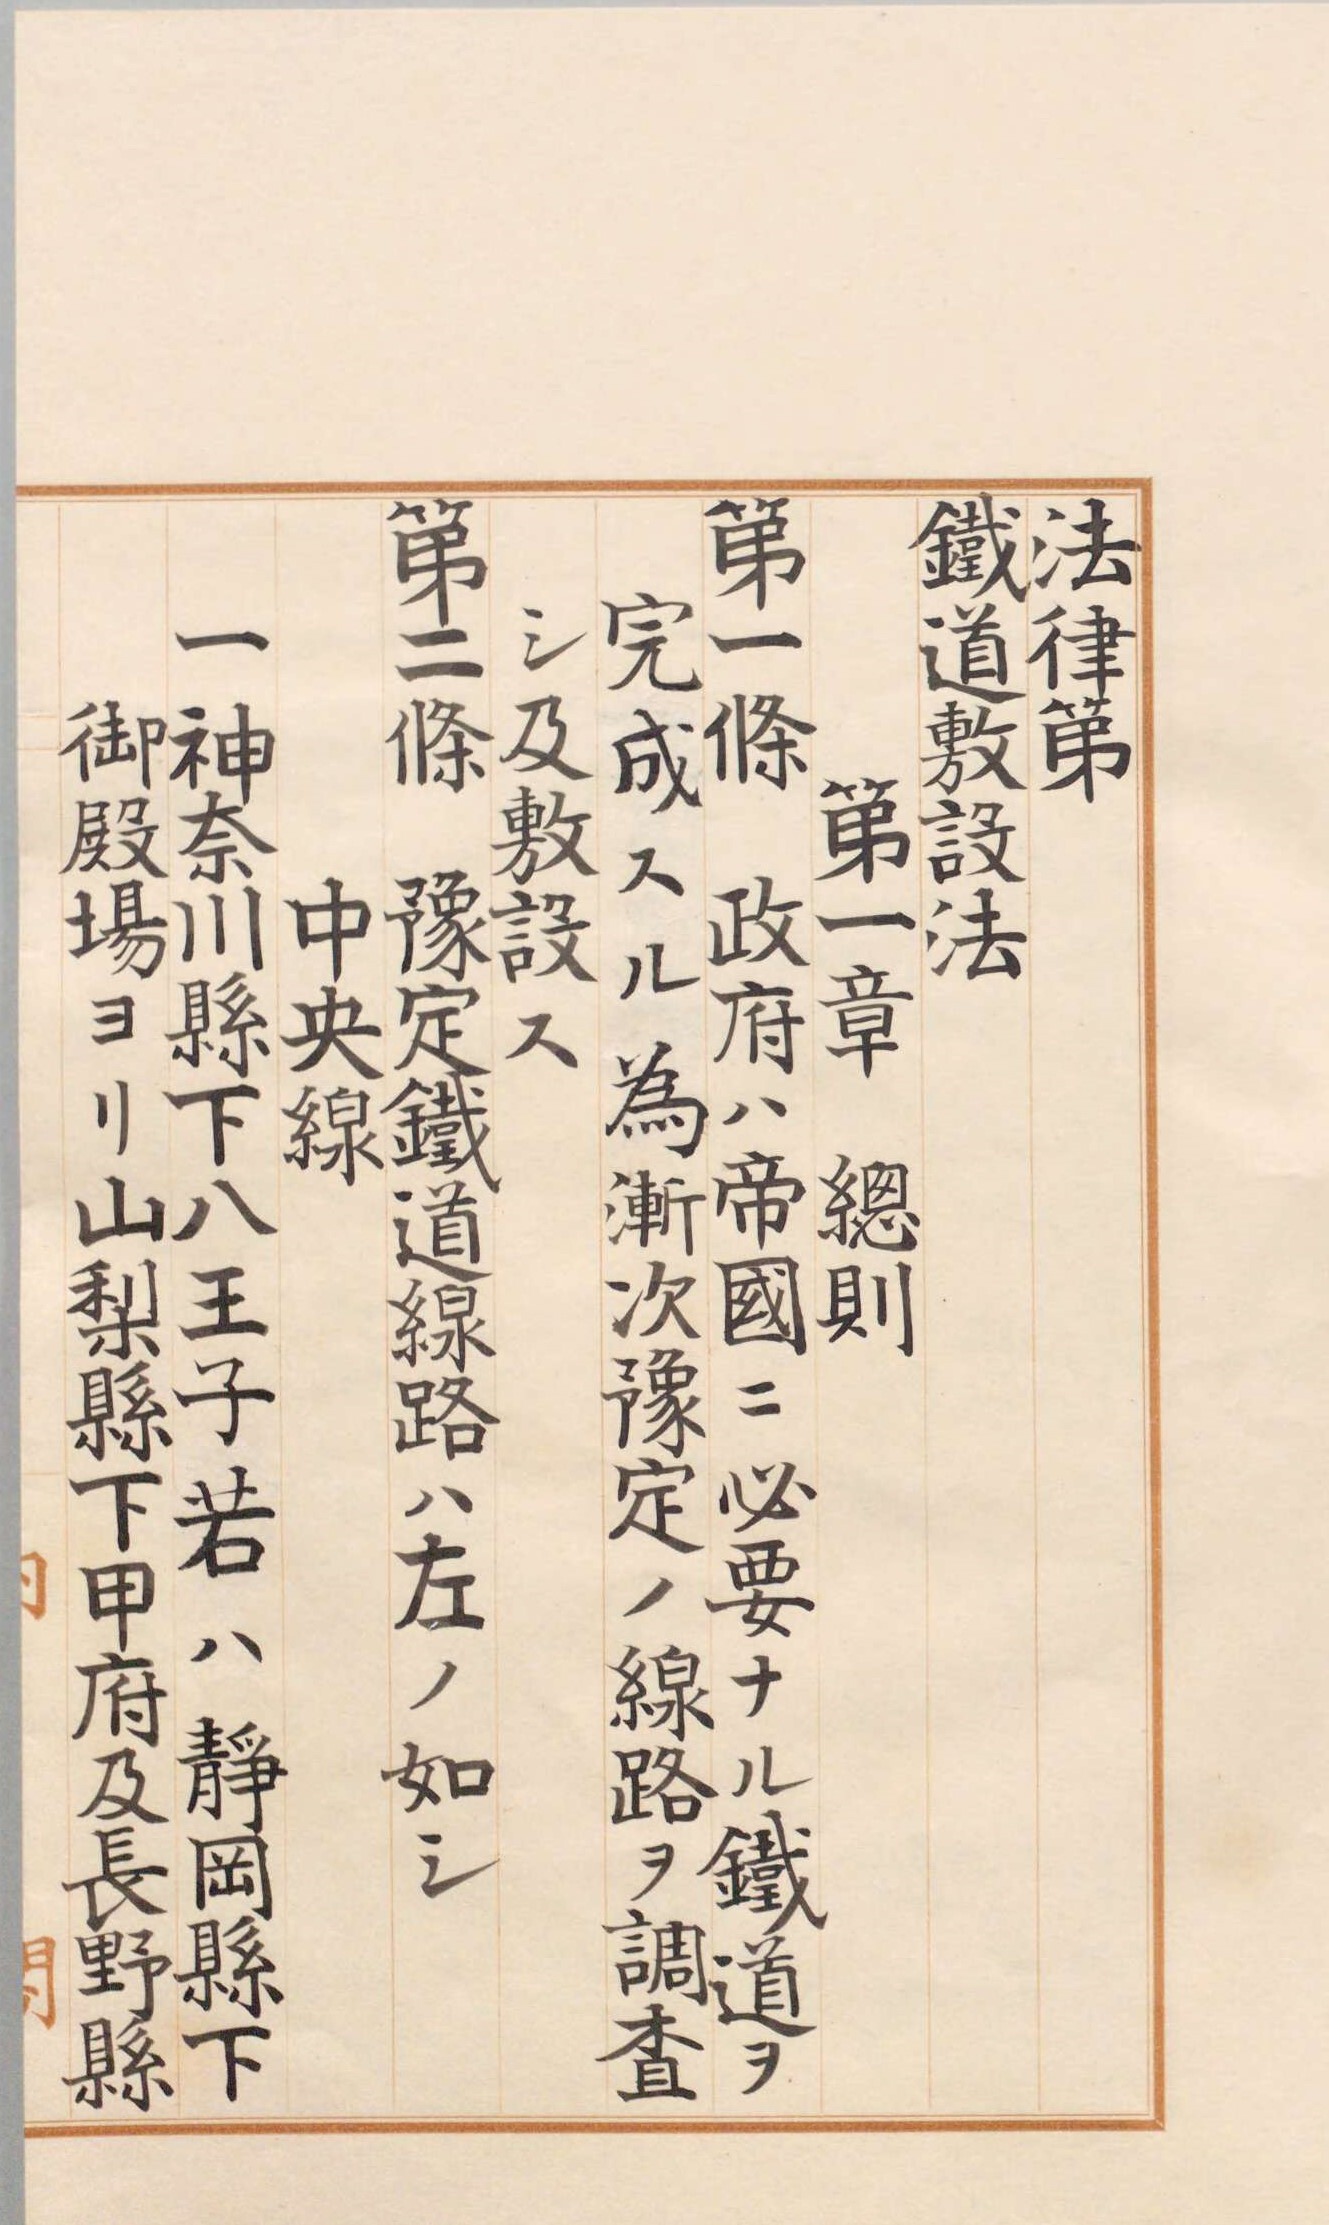 法律第
鐵道敷設法
第一章　總則
第一條　政府ハ帝國ニ必要ナル鐵道ヲ
完成スル為漸次豫定ノ線路ヲ調査
シ及敷設ス
第二條　豫定鐵道線路ハ左ノ如シ
中央線
一神奈川縣下八王子若ハ靜岡縣下
御殿場ヨリ山梨縣下甲府及長野縣